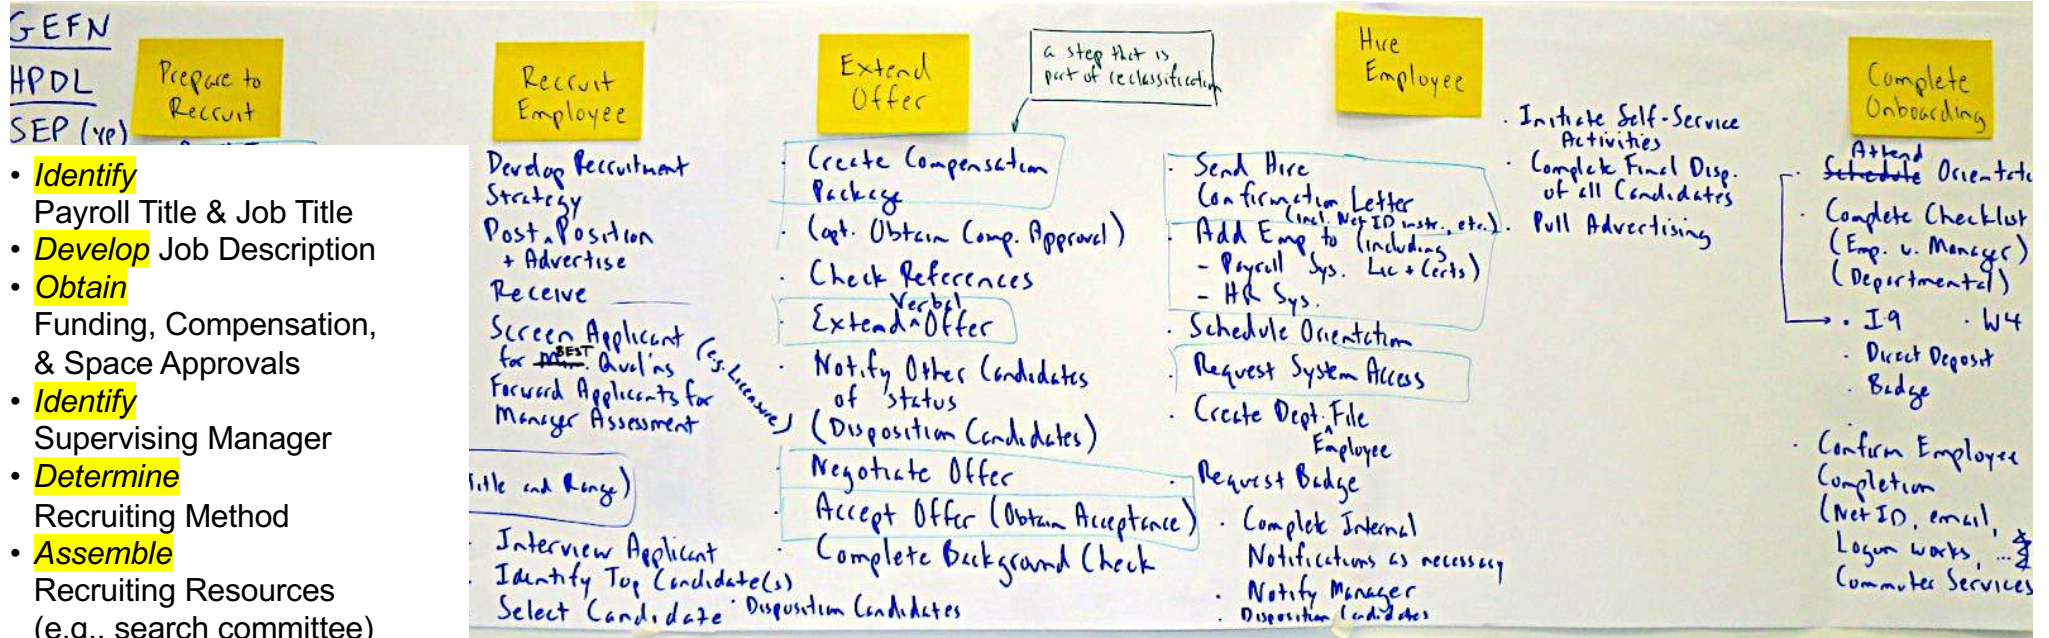 GEFN
HPDL
SEP (yr)
Prepare to
Recruit
• Identify
Payroll Title & Job Title
• Develop Job Description
• Obtain
Funding, Compensation,
& Space Approvals
• Identify
Supervising Manager
• Determine
Recruiting Method
• Assemble
Recruiting Resources
(e.g., search committee)
Recruit
Employee
Develop Recruitment
Strategy
Post Position
+ Advertise
Receive
Screen Applicant
for BEST Qual'ns
(e.g. Licensure)
Forward Applicants for
Manager Assessment
Title and Range)
· Interview Applicant
· Identify Top Candidate(s)
· Select Candidate · Disposition Candidates
Extend
Offer
a step that is
part of reclassification
· Create Compensation
Package
· (opt. Obtain Comp. Approval)
· Check References
· Extend Verbal Offer
· Notify Other Candidates
of status
(Disposition Candidates)
· Negotiate Offer
· Accept Offer (Obtain Acceptance)
· Complete Background Check
Hire
Employee
· Send Hire
Confirmation Letter
(incl. Net ID instr., etc.)
· Add Emp to (including
- Payroll Sys. Lic + Certs)
- HR Sys.
· Schedule Orientation
· Request System Access
· Create Dept. Employee File
· Request Badge
· Complete Internal
Notifications as necessary
· Notify Manager
· Disposition Candidates
· Initiate Self-Service
Activities
· Complete Final Disp.
of all Candidates
· Pull Advertising
Complete
Onboarding
· Attend Schedule Orientat
· Complete Checklist
(Emp. v. Manager)
(Departmental)
· I9 · W4
· Direct Deposit
· Badge
· Confirm Employee
Completion
(Net ID, email,
Logon works, ...
Commuter Services